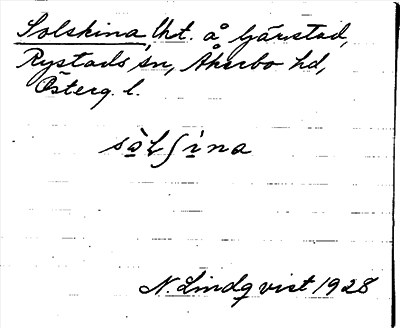 Solskina lht. å Gärstad,
Rystads sn, Åkerbo hd,
Österg. l.
sòlʃìna
N. Lindqvist 1928